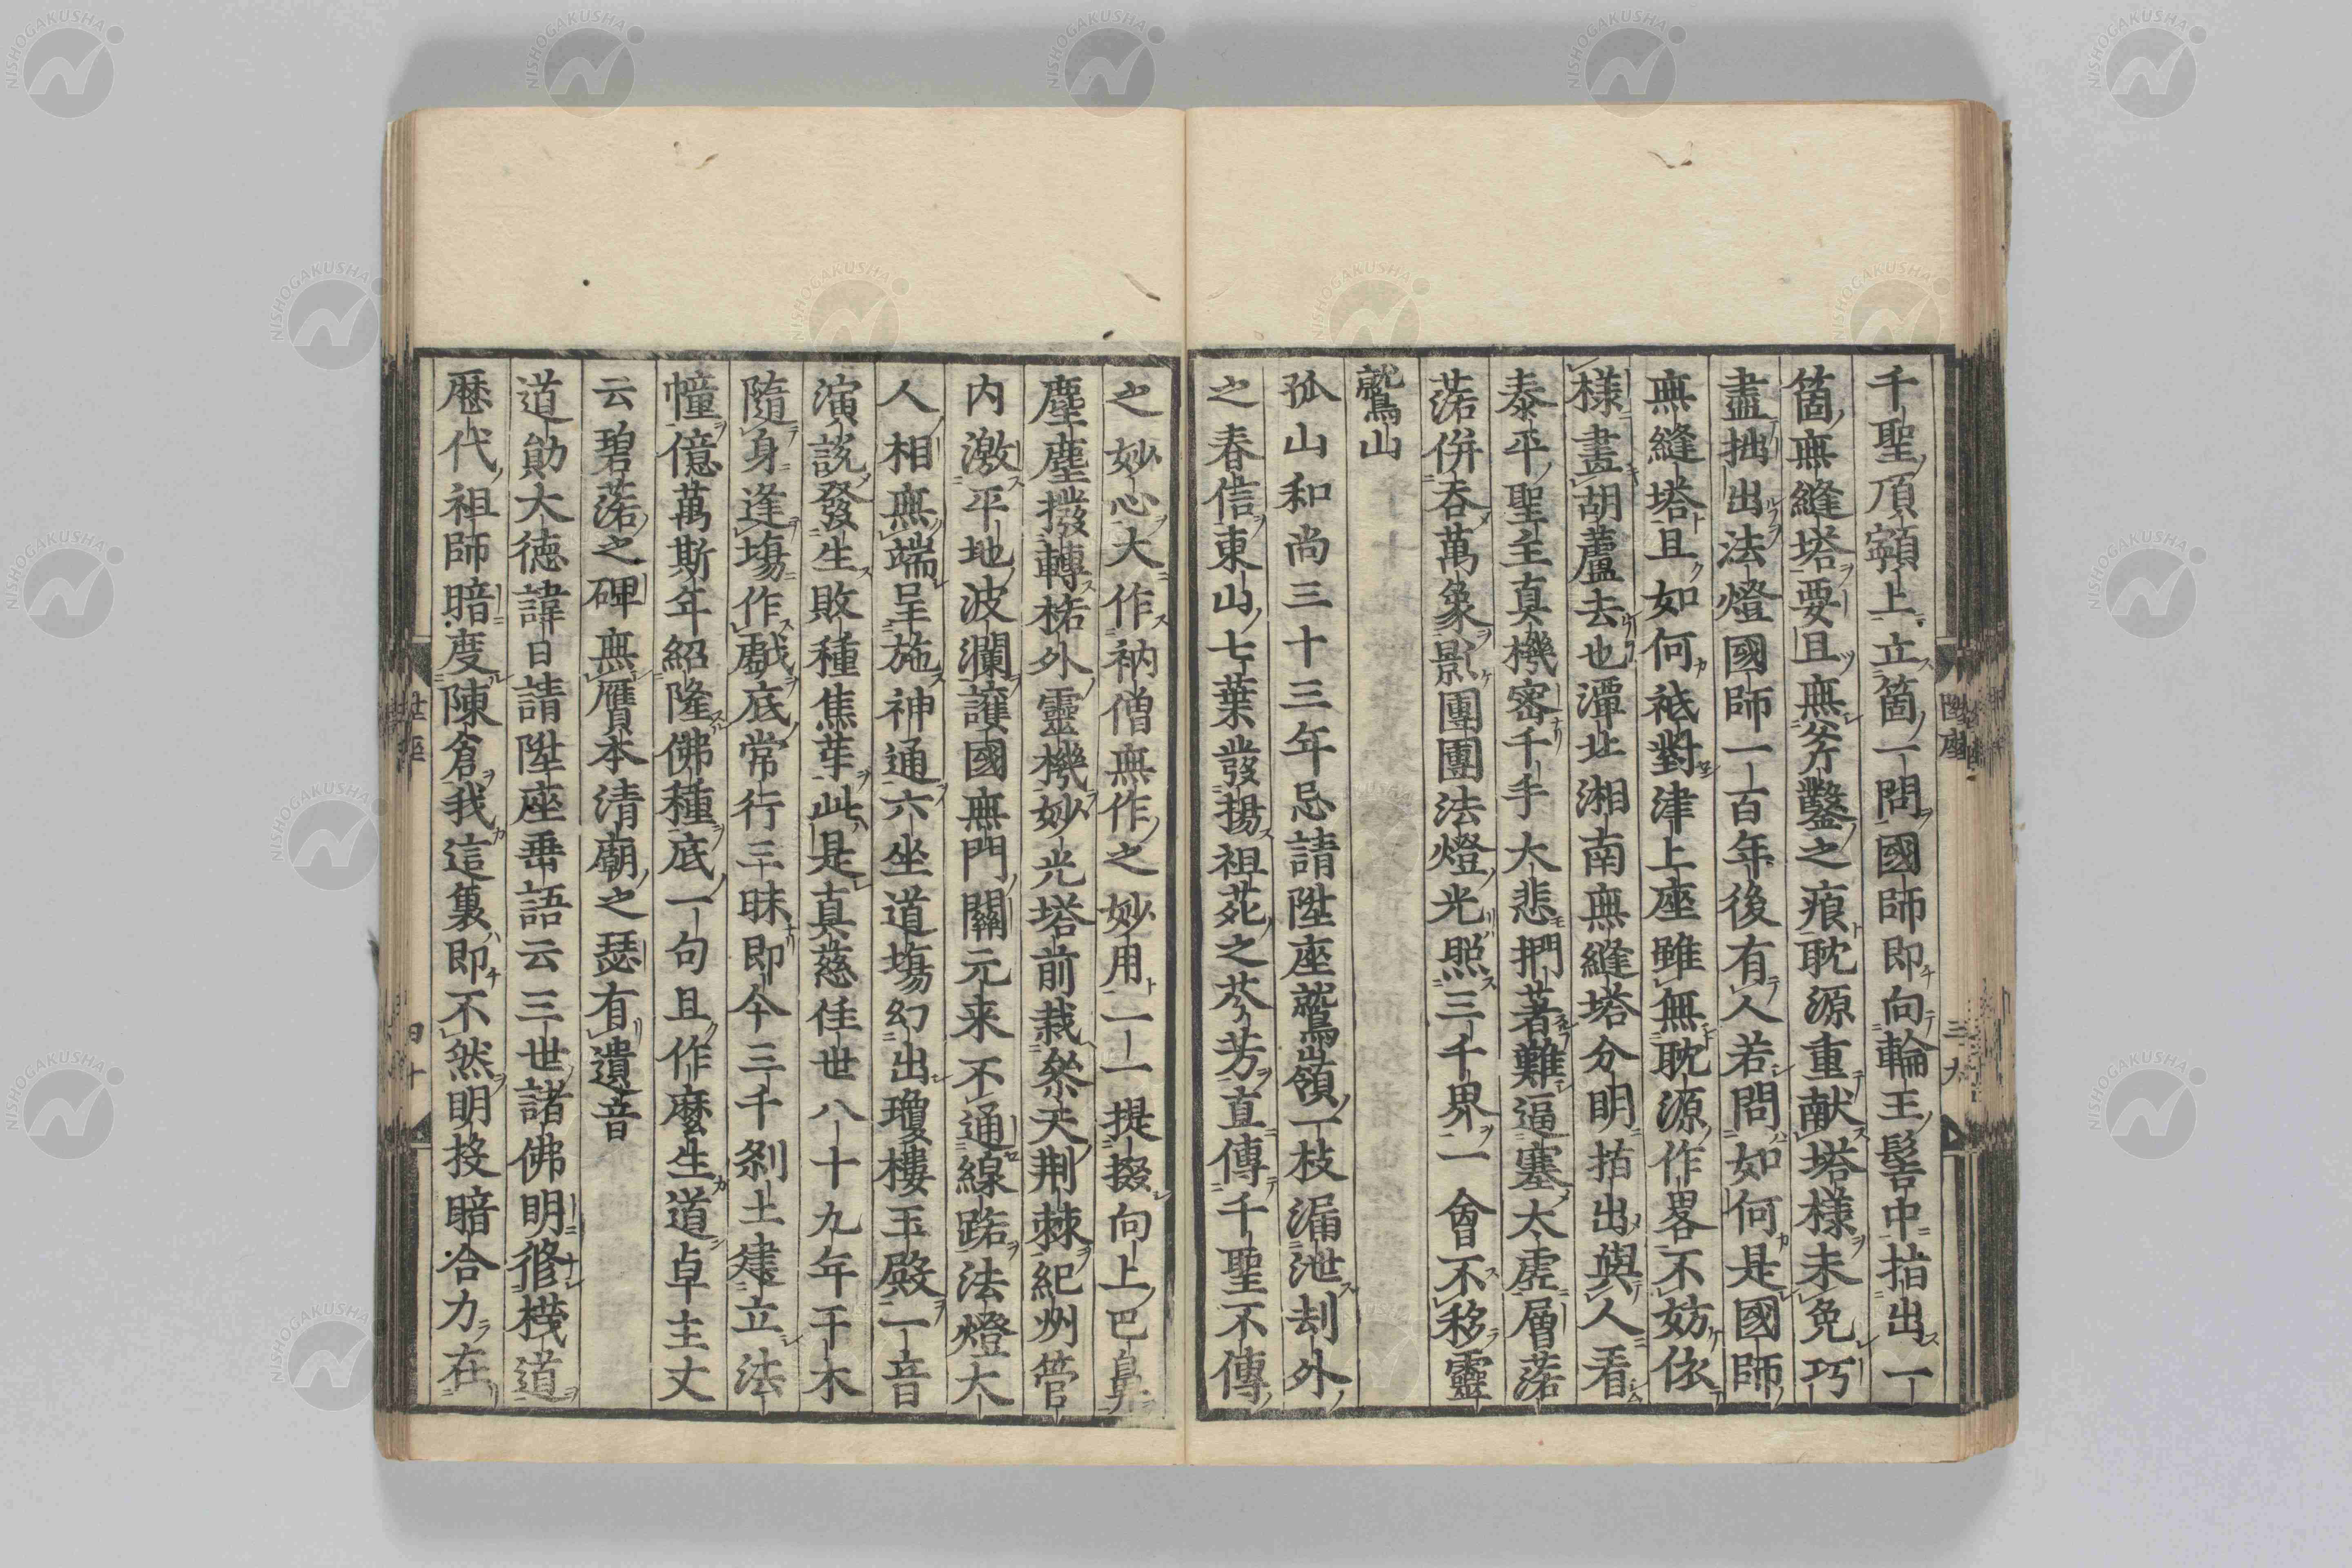 千聖頂𩕳上立箇一問國師即向輪王髻中指出一
箇無縫塔要且無斧鑿之痕耽源重献塔様未免巧
盡拙出法燈國師一百年後有人若問如何是國師
無縫塔且如何祗對津上座雖無耽源作畧不妨依
様畫胡蘆去也潭北湘南無縫塔分明指出與人看
泰平聖主真機密千手大悲捫著難逼塞太虚層落
落併吞萬象影團團法燈光照三千界一會不移靈
鷲山
孤山和尚三十三年忌請陞座鷲嶺一枝漏泄刦外
之春信東山七葉發揚祖苑之芬芳直傳千聖不傳
之妙心大作衲僧無作之妙用一一提掇向上巴鼻
塵塵撥轉格外靈機妙光塔前栽參天荆棘紀州管
内激平地波瀾護國無門關元来不通線路法燈大
人相無端呈施神通六坐道塲幻出瓊樓玉殿一音
演説發生敗種焦芽此是真慈住世八十九年干木
隨身逢塲作戲底常行三昧即今三千刹土建立法
幢億萬斯年紹隆佛種底一句且作麽生道卓主丈
云碧落之碑無贋本清廟之瑟有遺音
道勛大德諱日請陞座垂語云三世諸佛明修棧道
歴代祖師暗度陳倉我這裏即不然明投暗合力在